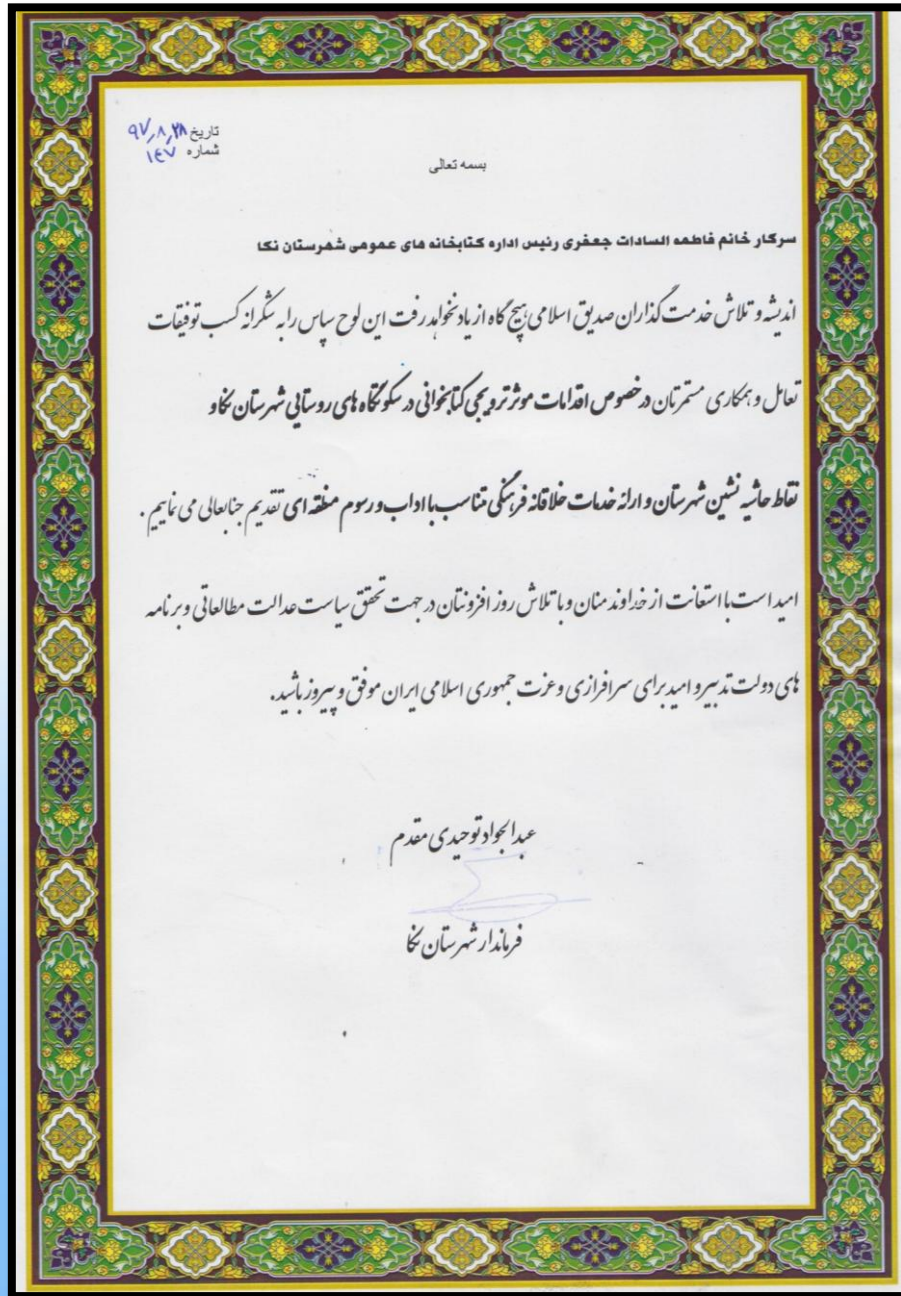 تاریخ ۹۷٫۸٫۲۸
شماره ۱۴۷
بسمه تعالی
سرکار خانم فاطمه السادات جعفری رئیس اداره کتابخانه های عمومی شهرستان نکا
اندیشه و تلاش خدمت گذاران صدیق اسلامی هیچ گاه از یاد نخواهد رفت این لوح سپاس را به شکرانه کسب توفیقات
تعامل و همکاری مستمرتان در خصوص اقدامات موثر ترویجی کتابخوانی در سکونتگاه های روستایی شهرستان نکا و
نقاط حاشیه نشین شهرستان و ارائه خدمات خلاقانه فرهنگی متناسب با اداب و رسوم منطقه ای تقدیم جنابعالی می نماییم .
امید است با استعانت از خداوند منان و با تلاش روز افزونتان در جهت تحقق سیاست عدالت مطالعاتی و برنامه
های دولت تدبیر و امید برای سرافرازی و عزت جمهوری اسلامی ایران موفق و پیروز باشید.
عبدالجواد توحیدی مقدم
فرماندار شهرستان نکا